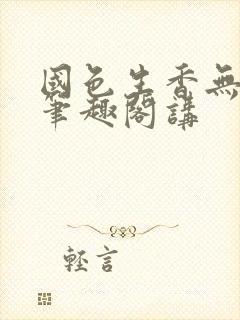 國色生香無
筆趣閣講
輕言